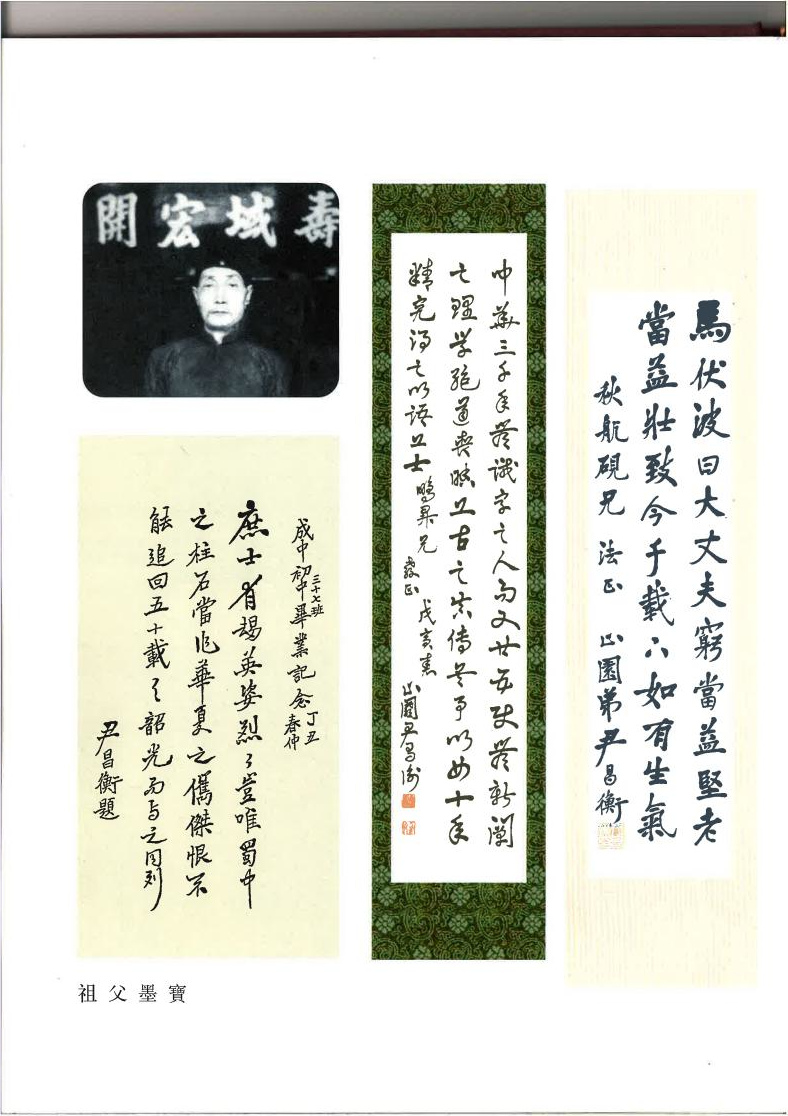 壽域宏開
馬伏波曰大丈夫窮當益堅老
當益壯致今千載下如有生氣
秋航硯兄 法正 止園弟尹昌衡
中華三千年無識字之人而又廿五史無新闡
之理学絕道喪昧上古之真傳無乎以十年
精究得之以語上士 鵬昇兄 教正 戊寅春 止園尹昌衡
成中初中三十七班畢業記念 丁丑春仲
庶士有朅英姿烈〻豈唯蜀中
之柱石當作華夏之儁傑恨不
能追回五十載之韶光而与之同列
尹昌衡題
祖父墨寶